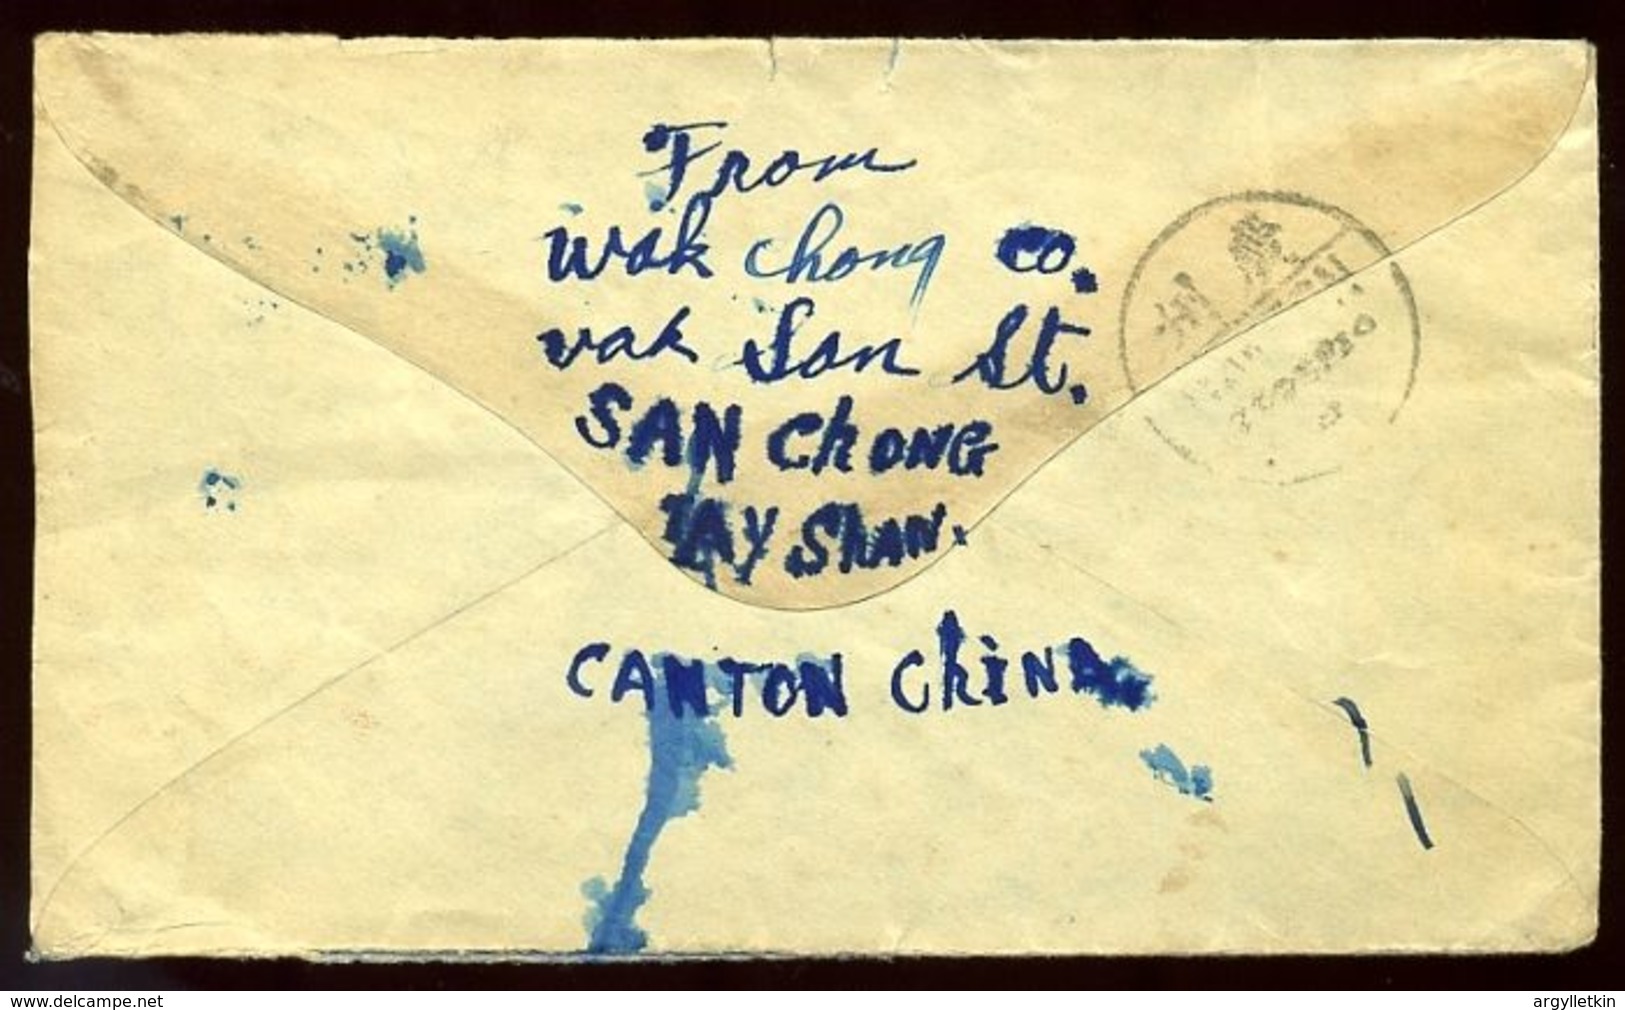 From
Wak Chong Co.
Wak Son St.
SAN ChONG
TAY ShAN.
CANTON ChiNA.
州 廣
CANTON
www.delcampe.net
argylletkin